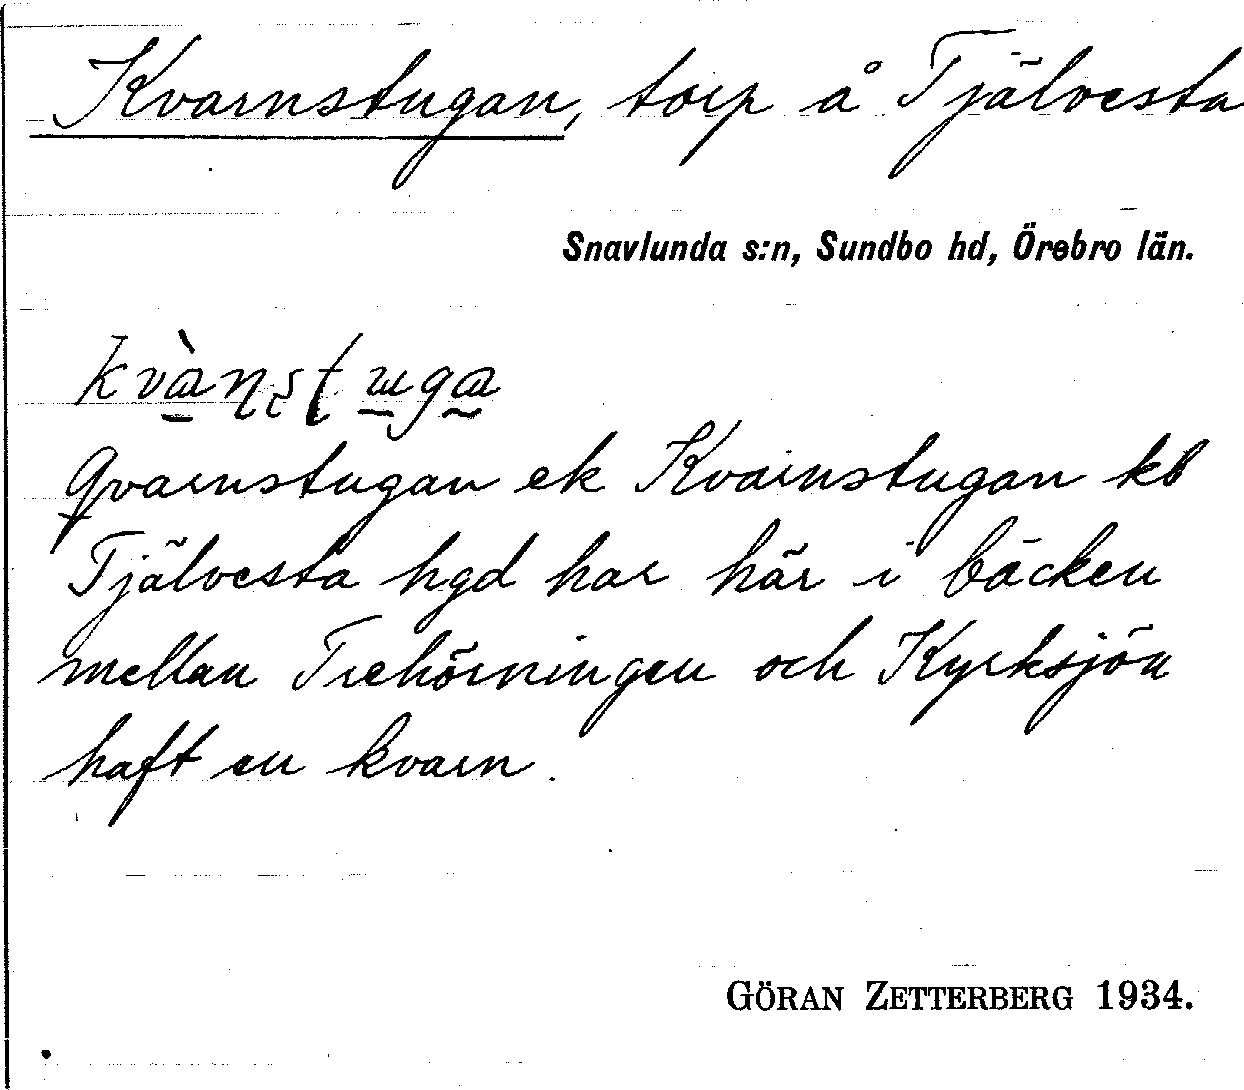 Kvarnstugan, torp å Tjälvesta
Snavlunda s:n, Sundbo hd, Örebro län.
Qvarnstugan ek Kvarnstugan kb
Tjälvesta hgd har här i bäcken
mellan Trehörningen och Kyrksjön
haft en kvarn.
GÖRAN ZETTERBERG 1934.